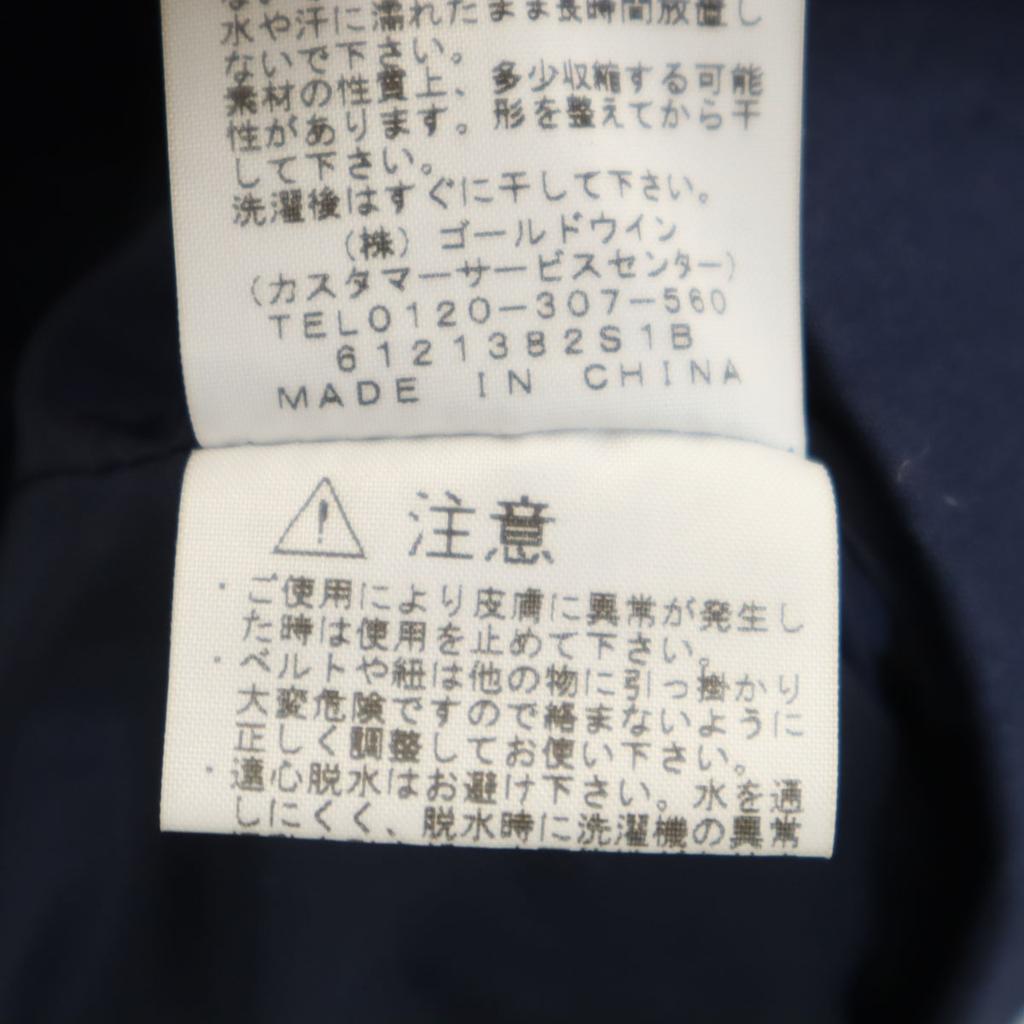 水や汗に濡れたまま長時間放置し
ないで下さい。
素材の性質上、多少収縮する可能
性があります。形を整えてから干
して下さい。
洗濯後はすぐに干して下さい。
(株)ゴールドウイン
(カスタマーサービスセンター)
TEL0120-307-560
6121382S1B
MADE IN CHINA
注意
・ご使用により皮膚に異常が発生し
た時は使用を止めて下さい。
・ベルトや紐は他の物に引っ掛かり
大変危険ですので絡まないように
正しく調整してお使い下さい。
・遠心脱水はお避け下さい。水を通
しにくく、脱水時に洗濯機の異常